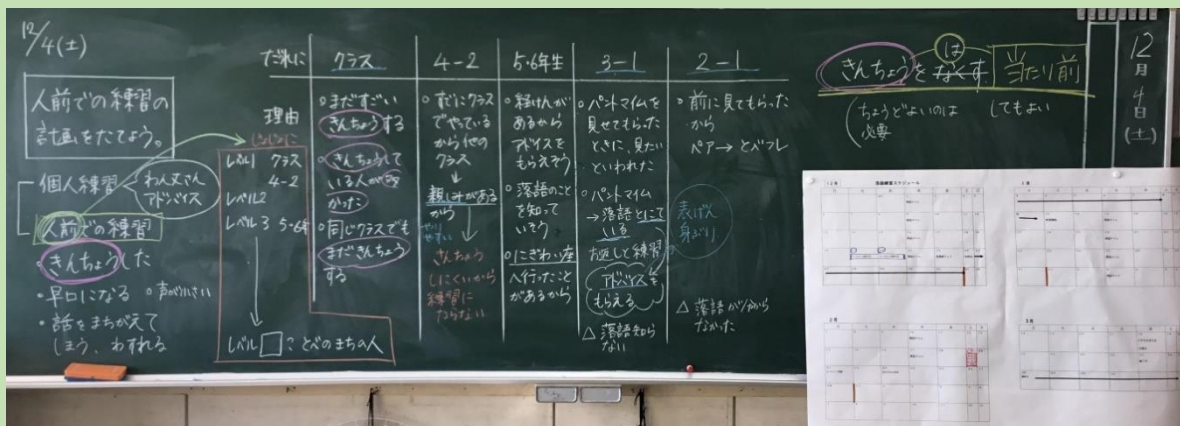 12/4(土)
人前での練習の
計画をたてよう。
個人練習
わん丈さん
アドバイス
人前での練習
・きんちょうした
・早口になる ○声が小さい
・話をまちがえて
しまう、わすれる
だれに
理由
じょじょに
レベル1 クラス
4-2
レベル2
レベル3 5・6年
レベル□ ことべのまちの人
クラス
○まだすごい
きんちょうする
○きんちょうして
いる人が多
かった
○同じクラスでも
まだきんちょう
する
4-2
○すでにクラス
でやっている
から他の
クラス
↓
親しみがある
から
やりやすい
きんちょう
しにくいから
練習に
ならない
5・6年生
○経けんが
あるから
アドバイスを
もらえそう
○落語のこと
を知って
いそう
○にぎわい座
へ行ったこと
があるから
3-1
○パントマイムを
見せてもらった
ときに、見たい
といわれた
○パントマイム
→落語とにて
いる
お返しと練習
アドバイスを
もらえる
△落語知ら
ない
2-1
○前に見てもらった
から
ペア→とべフレ
表げん
身ぶり
△落語が分から
なかった
は
きんちょうをなくす 当たり前
(ちょうどよいのは してもよい
必要
12月4日(土)
12月
1月
2月
3月